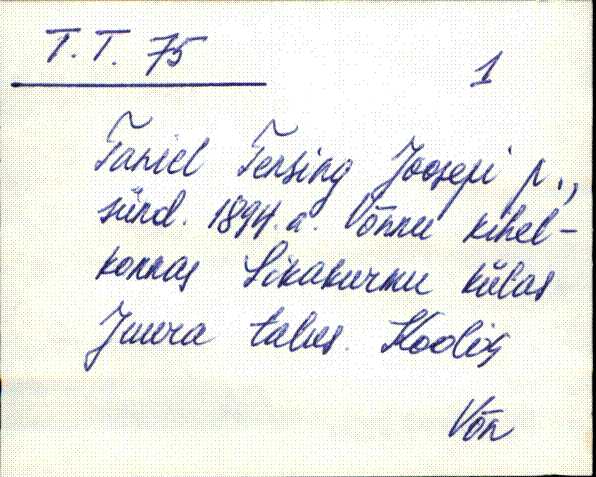 T. T. 75
1
Taniel Tensing Joosepi p.,
sünd. 1894. a. Võnnu kihel-
konnas Sikakurmu külas
Juura talus. Koolis
Võn